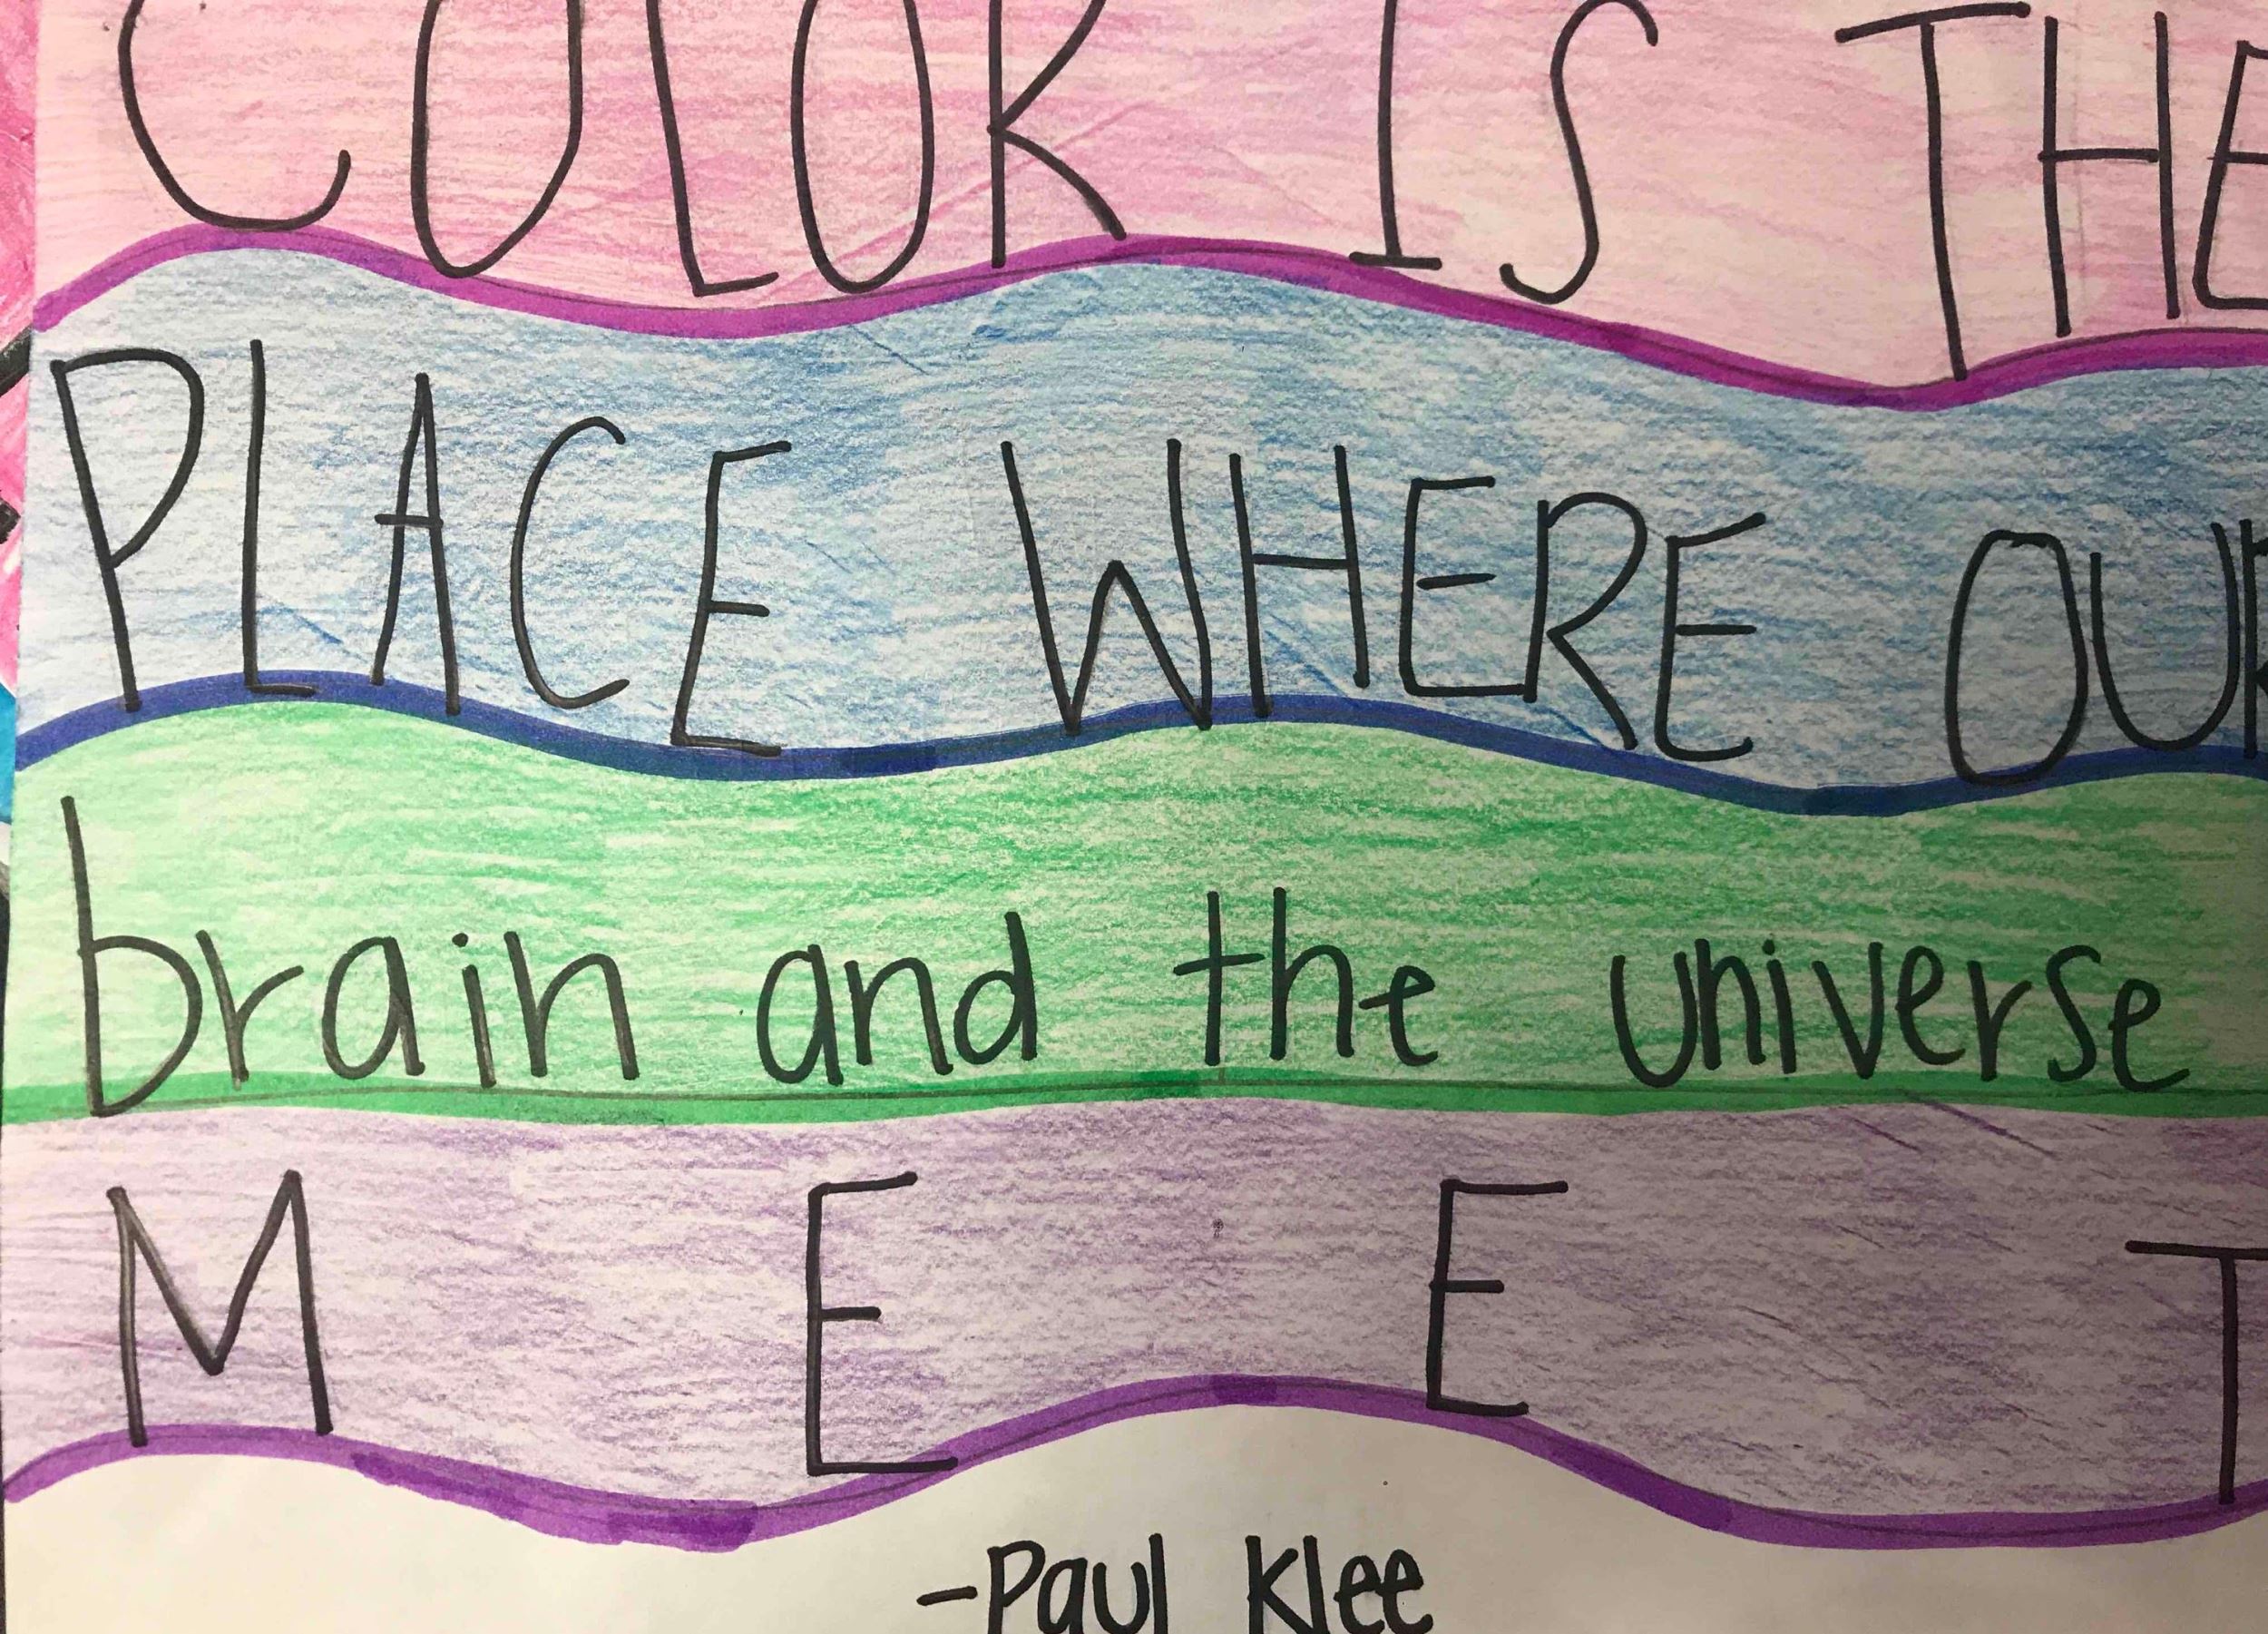 COLOR IS THE
PLACE WHERE OUR
brain and the universe
MEET
-Paul Klee